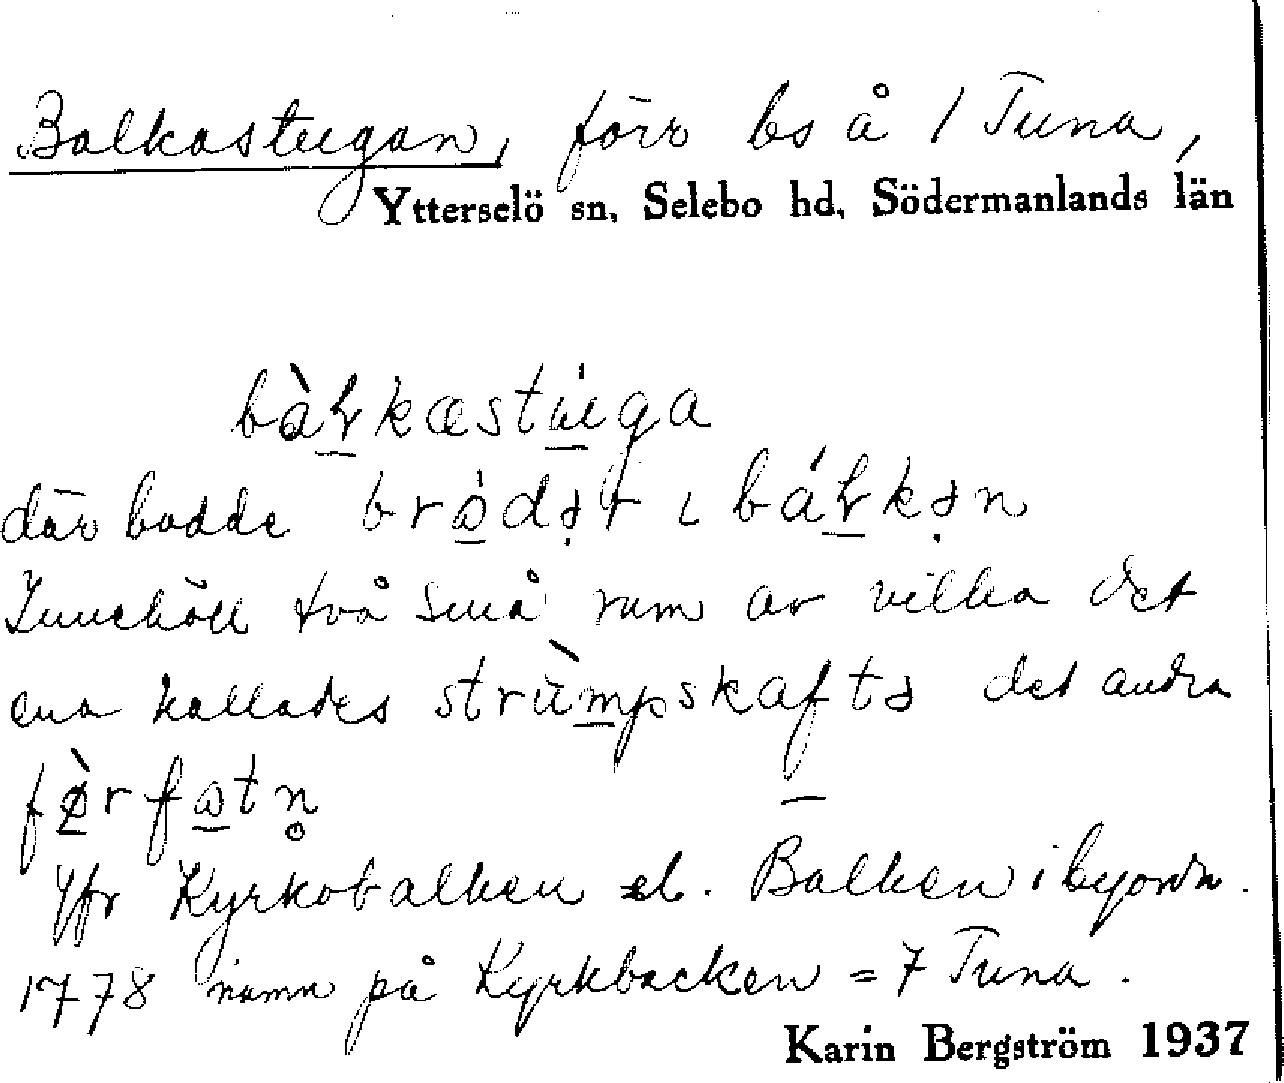 Balkastugan, förr bs å 1 Tuna,
Ytterselö sn, Selebo hd, Södermanlands län
bàɫkæstu̇ga
där bodde brodər ι báɫkən
Innehöll två små rum av vilka det
ena kallades strùmpskaftə det andra
fø̀rfatn̥
Jfr Kyrkobalken el. Balken i byordn.
1778 namn på Kyrkbacken = 7 Tuna.
Karin Bergström 1937